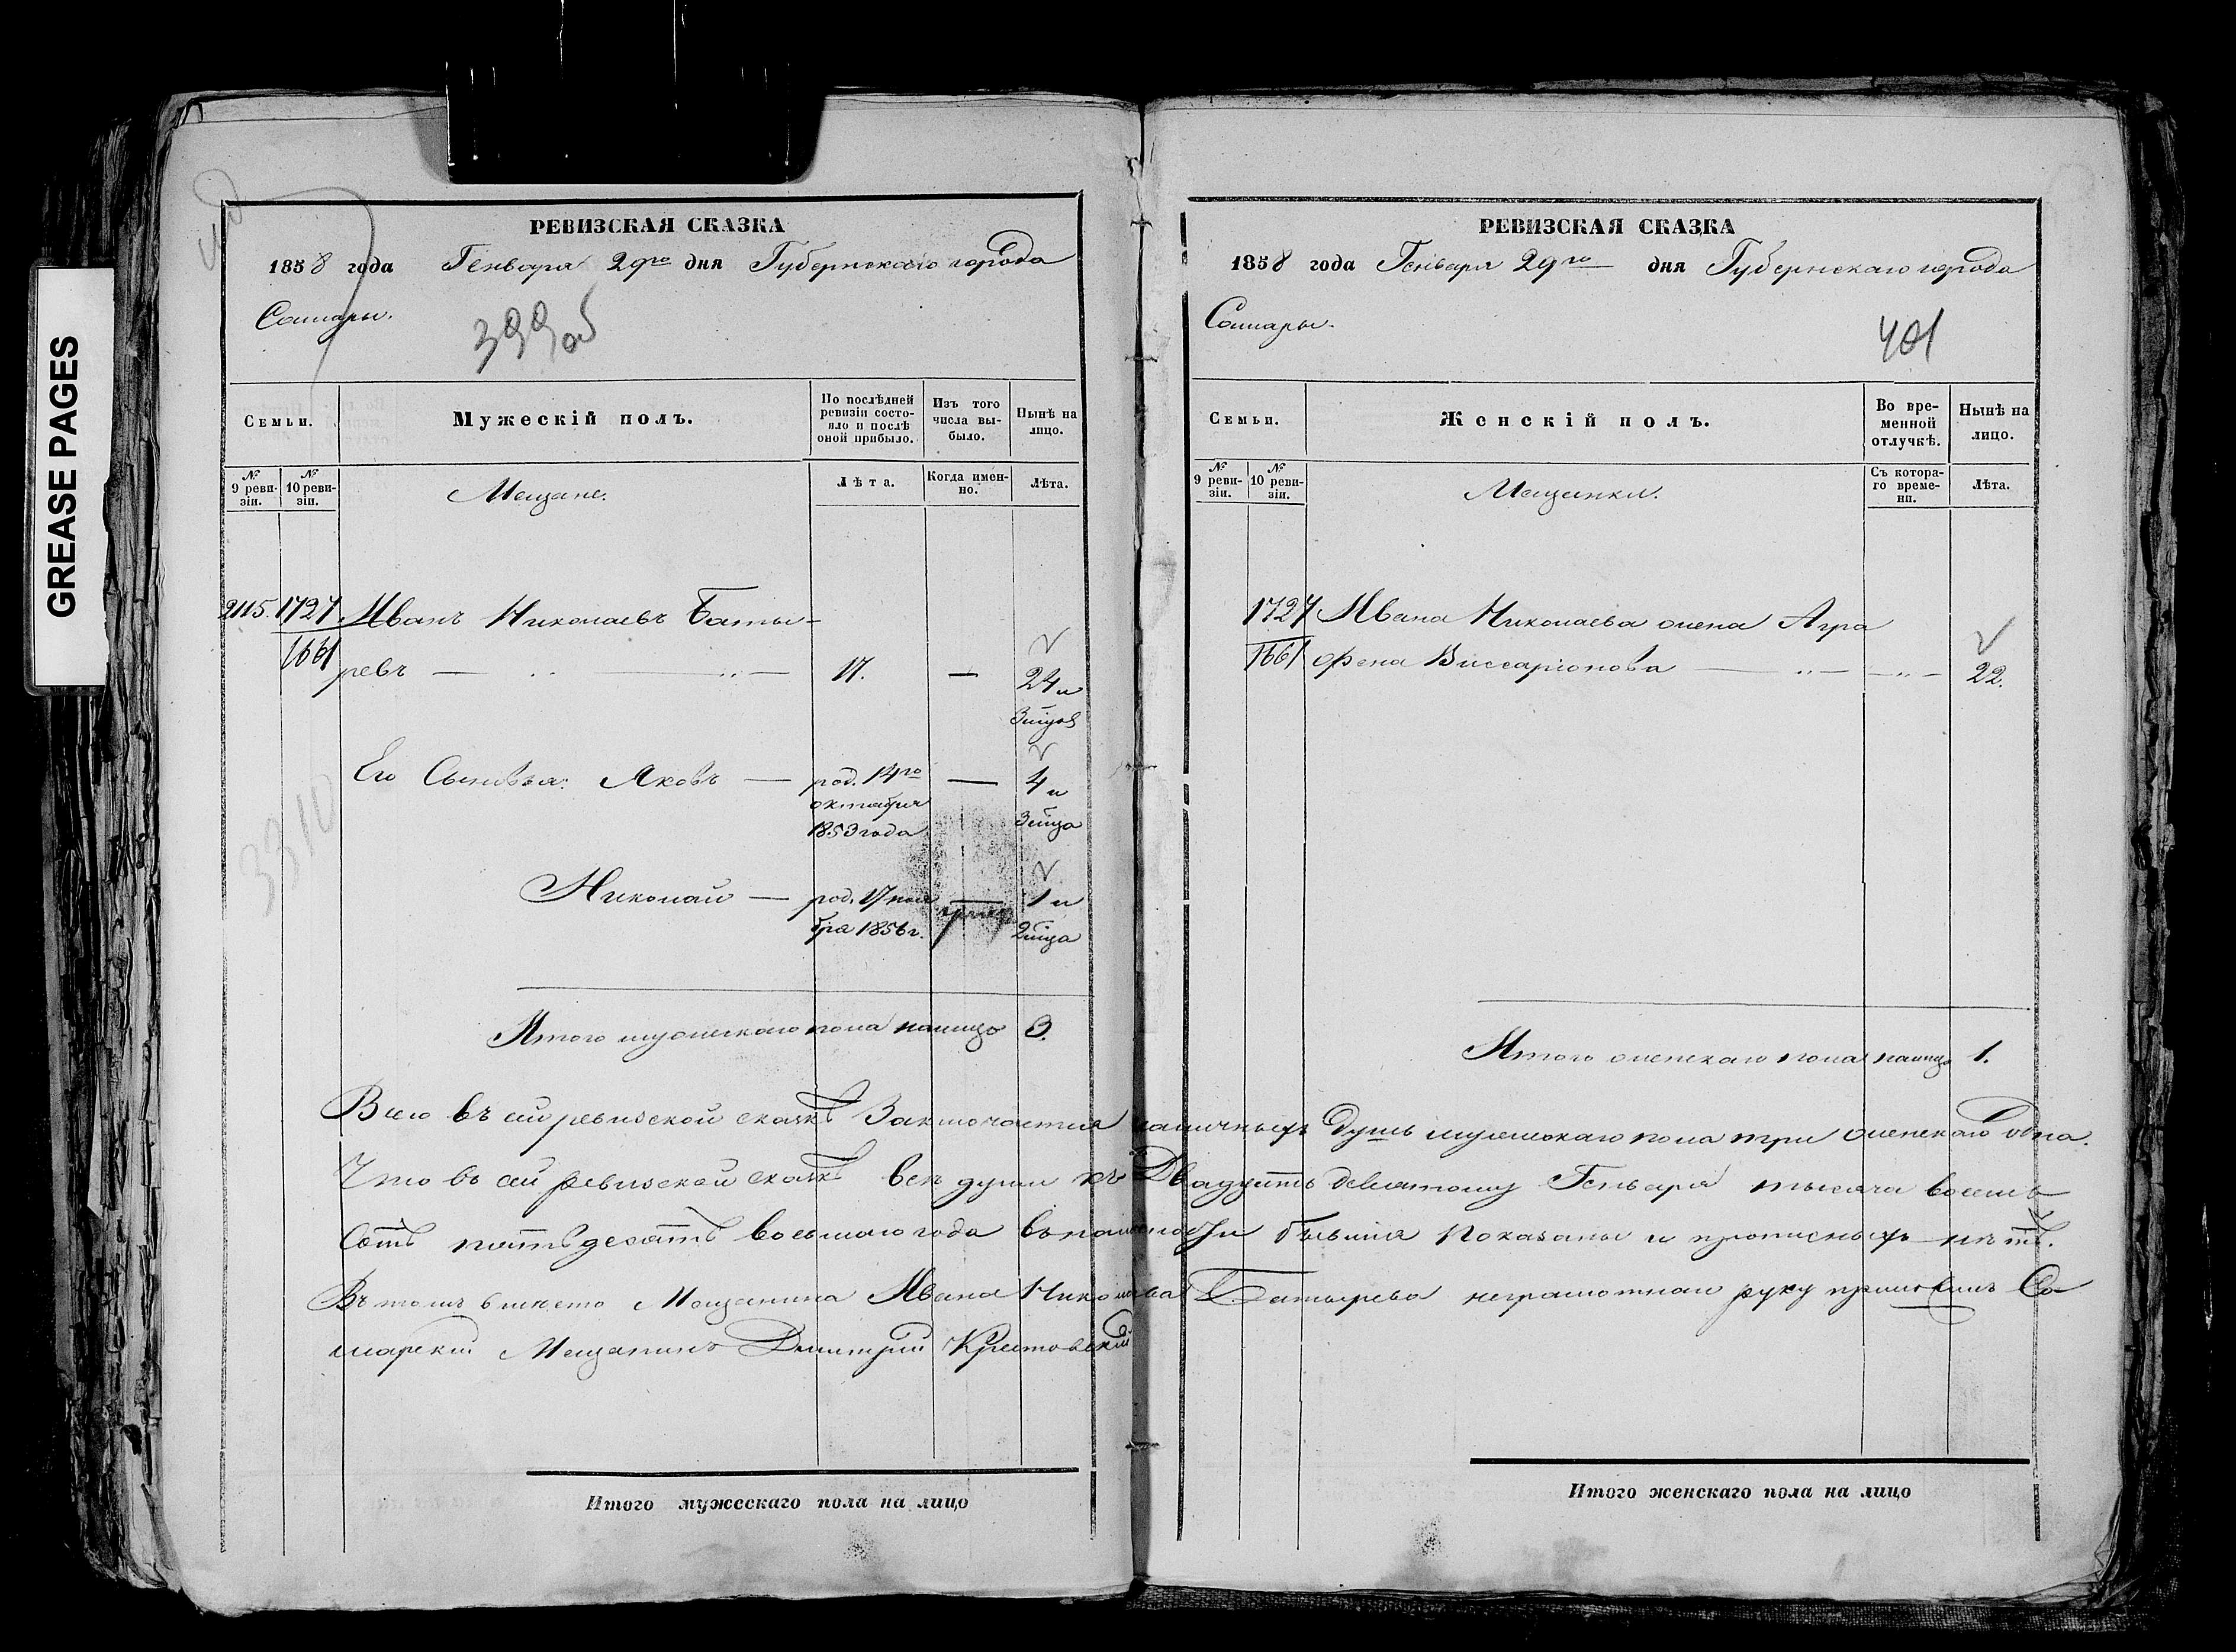 GREASE PAGES
РЕВИЗСКАЯ СКАЗКА
1858 года Генваря 29го дня Губернскаго города
Самары.
399об
Семьи.
Мужескій полъ.
По послѣдней ревизіи состояло и послѣ оной прибыло.
Изъ того числа выбыло.
Нынѣ на лицо.
№ 9 ревизіи.
№ 10 ревизіи.
Мещане.
Лѣта.
Когда именно.
Лѣта.
2115. 1727 Иванъ Николаевъ Баты-
1661 ревъ — 17. — 24 и
3 мцов
Его Сыновья: Яковъ — род. 14го — 4 и
октября 3 мца
1853 года
Николай — род. 17 ноя — 1 и
бря 1856 г. 2 мца
3310
Итого мужескаго пола налицо 3.
РЕВИЗСКАЯ СКАЗКА
1858 года Генваря 29го дня Губернскаго города
Самары.
401
Семьи.
Женскій полъ.
Во временной отлучкѣ.
Нынѣ на лицо.
№ 9 ревизіи.
№ 10 ревизіи.
Мещанки.
Съ котораго времени.
Лѣта.
1727 Ивана Николаева жена Агра
1661 фена Виссаріонова — 22.
Итого женскаго пола налицо 1.
Всего въ сей ревизской сказкѣ Заключается наличныхъ душъ мужескаго пола три женскаго одна.
Что въ сей ревизской сказкѣ всѣ души къ Двадцать девятому Генваря тысяча восемь
сотъ пятьдесятъ восьмаго года въ наличности бывшія показаны и прописныхъ нѣтъ.
Въ томъ вмѣсто Мещанина Ивана Николаева Батырева неграмотнаго руку приложилъ Са-
марскій Мещанинъ Дмитрій Крестовскій
Итого мужескаго пола на лицо
Итого женскаго пола на лицо